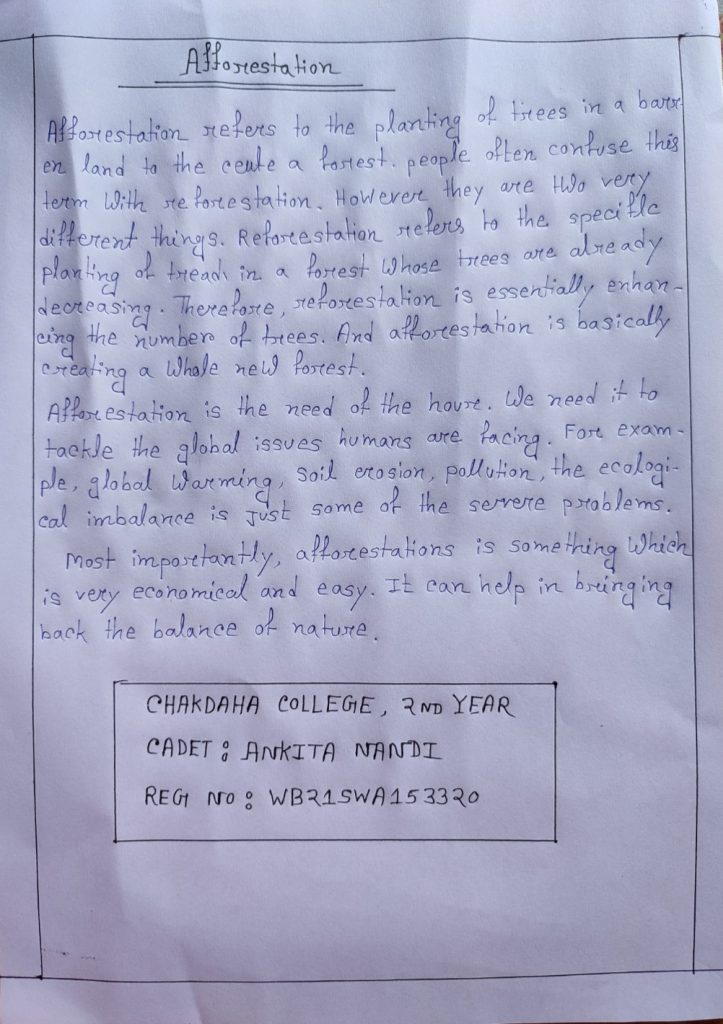 Afforestation
Afforestation refers to the planting of trees in a barr-
en land to the ceute a forest. people often confuse this
term with reforestation. However they are two very
different things. Reforestation refers to the specific
planting of treads in a forest whose trees are already
decreasing. Therefore, reforestation is essentially enhan-
cing the number of trees. And afforestation is basically
creating a whole new forest.
Afforestation is the need of the hour. We need it to
tackle the global issues humans are facing. For exam-
ple, global warming, soil erosion, pollution, the ecologi-
cal imbalance is just some of the servere problems.
Most importantly, afforestations is something which
is very economical and easy. It can help in bringing
back the balance of nature.
CHAKDAHA COLLEGE, 2ND YEAR
CADET : ANKITA NANDI
REG NO : WB21SWA153320